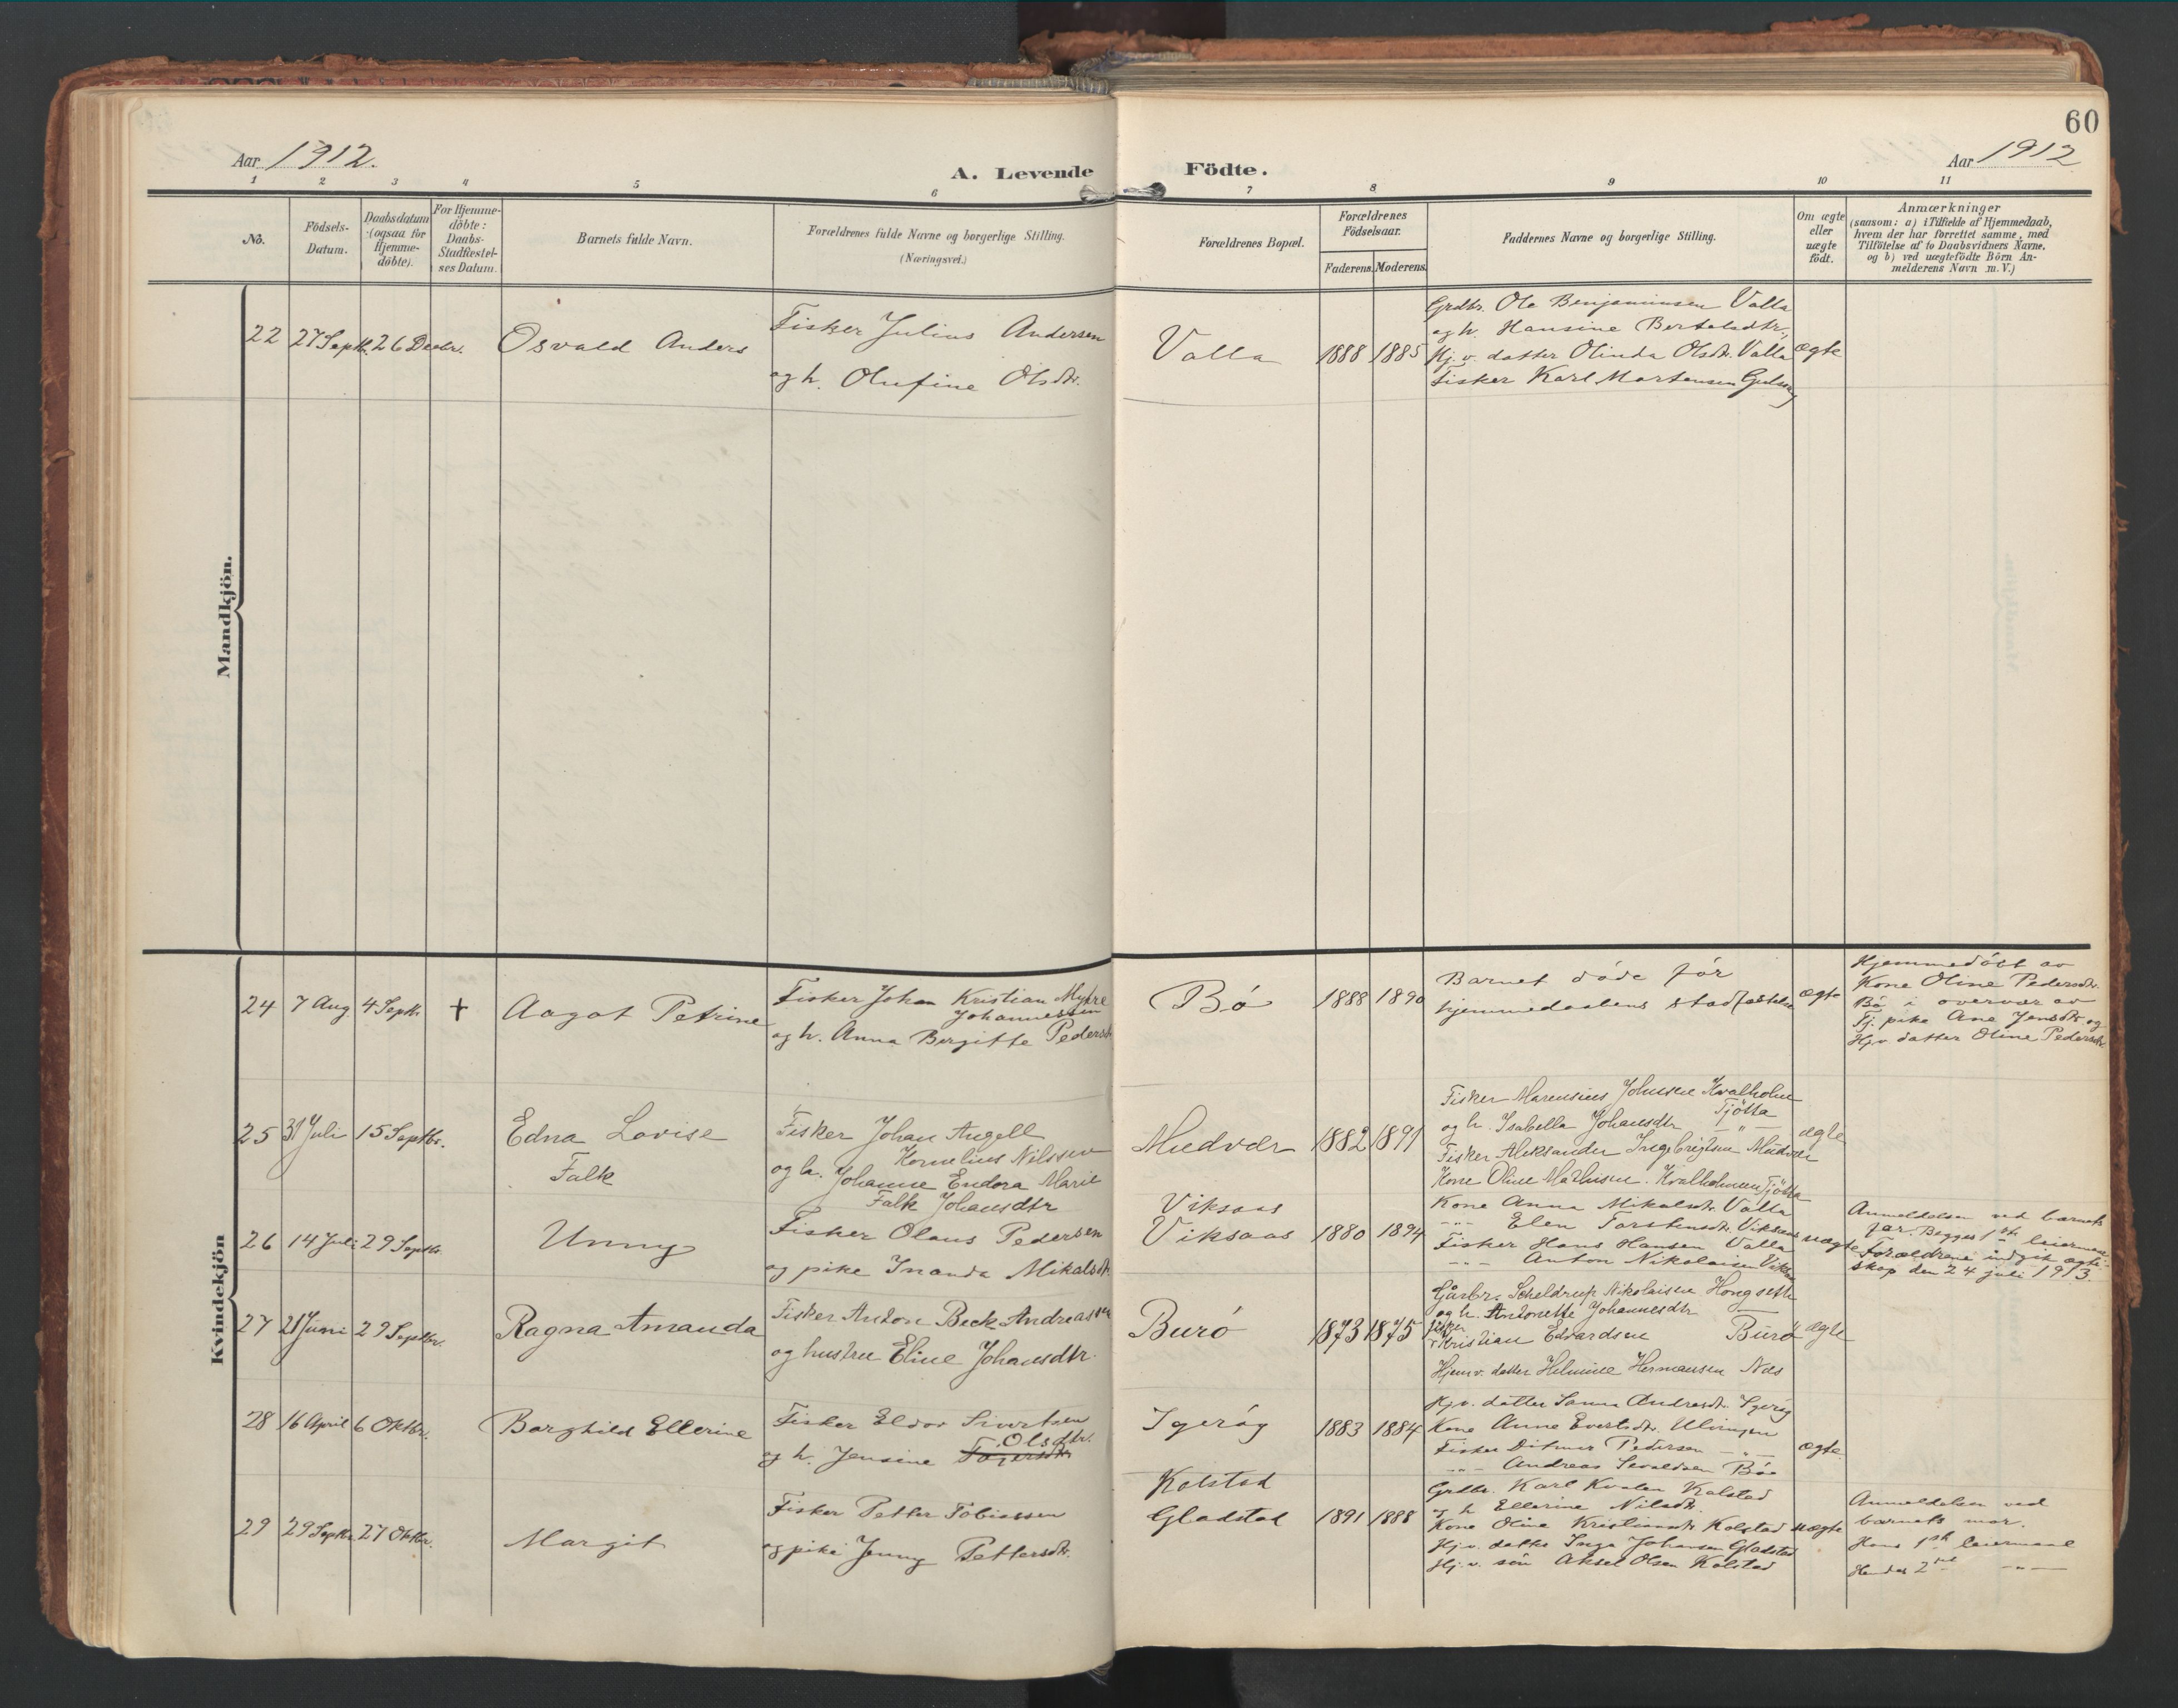 60
Aar 1912.
A. Levende Födte.
Aar 1912
1 2 3 4 5 6 7 8 9 10 11
No.
Födsels-
Datum.
Daabsdatum
(ogsaa for
Hjemme-
döbte).
For Hjemme-
döbte:
Daabs-
Stadfæstel-
ses Datum.
Barnets fulde Navn.
Forældrenes fulde Navne og borgerlige Stilling.
(Næringsvei.)
Forældrenes Bopæl.
Forældrenes
Födselsaar.
Faderens. Moderens.
Faddernes Navne og borgerlige Stilling.
Om ægte
eller
uægte
födt.
Anmærkninger
(saasom: a) i Tilfælde af Hjemmedaab,
hvem der har forrettet samme, med
Tilföielse af to Daabsvidners Navne,
og b) ved uægtefödte Börn An-
melderens Navn m. V.)
Mandkjön.
22 27 Septb. 26 Decbr. Osvald Anders
Fisker Julius Andersen
og h. Olufine Olsdtr.
Valla 1888 1885
Grdbr. Ole Benjaminsen Valla
og h. Hansine Bertelsdtr.
Hj. v. datter Olinda Olsdtr. Valla
Fisker Karl Martensen
ægte
Kvindekjön
24 7 Aug. 4 Septb. + Aagot Petrine
Fisker Johan Kristian Myhre
Johannessen
og h. Anna Birgitte Pedersdtr.
Bö 1888 1890
Barnet döde för
hjemmedaabens stadfæstelse
ægte
Hjemmedöbt av
Kone Oline Pedersdtr.
Bö i overvær av
Tj. pike Ane Jensdtr. og
Hj.v. datter Oline Pedersdtr.
25 31 Juli 15 Septbr. Edna Lovise
Falk
Fisker Johan Angell
Kornelius Nilssen
og h. Johanne Endora Marie
Falk Johansdtr
Mudvær 1882 1891
Fisker Marensius Johnsen Kvalholmen
Tjötta
og h. Isabella Johansdtr — " —
Fisker Aleksander Ingebrigtsen Mudvær
Kone Oline Mathisen. Kvalholmen Tjötta
ægte
26 14 Juli 29 Septbr. Unny
Fisker Olaus Pedersen
og pike Inanda Mikalsdtr.
Viksaas
Viksaas 1880 1894
Kone Anna Mikalsdtr. Valla
-"- Elen Torstensdtr. Viksaas
Fisker Hans Hansen Valla
-"- Anton Nikolaisen Viksaas
uægte
Anmeldelsen ved barnets
far. Begges 1ste leiermaal
Forældrene indgik ægte-
skap den 24 juli 1913.
27 21 Juni 29 Septbr. Ragna Amanda
Fisker Anton Beck Andreassen
og hustru Eline Johansdtr.
Burö 1873 1875
Gårbr. Scheldrup Nikolaisen Hongseth
og h. Antonette Johannesdtr —
Fisker
Kristian Edvardsen Burö
Hjemv. datter Helmine Hermansen Nos
ægte
28 16 April 6 Oktbr. Borghild Ellerine
Fisker Eldor Sivertsen
Olsdtr.
og h. Jensine
Igeröy 1883 1884
Hj.v. datter Sanna Andresdtr. Igeröy
Kone Anne Evertsdtr. Ulvingen
Fisker Ditmar Pedersen — " —
-"- Andreas Sevaldsen Böe
ægte
29 29 Septbr. 27 Oktbr. Margit
Fisker Petter Tobiassen
og pike Jenny Pettersdtr.
Kolstad
Gladstad 1891 1888
Grdbr. Karl Kvalen Kolstad
og h Ellerine Nilsdtr.
Kone Oline Kristiansdtr. Kolstad
Hj.v. datter Inga Johansen Gladstad
Hj. v. sön Aksel Olsen Kolstad
uægte
Anmeldelsen ved
barnets mor.
Hans 1ste leiermaal
Hendes 2det — " —